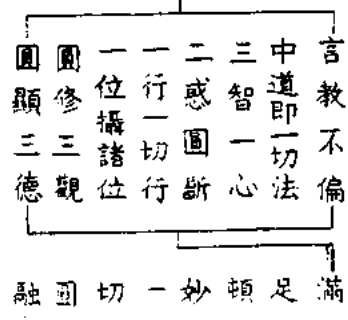 言教不偏
中道即一切法
三智一心
二惑圓斷
一行一切行
一位攝諸位
圓修三觀
圓顯三德
滿
足
頓
妙
一
切
圓
融